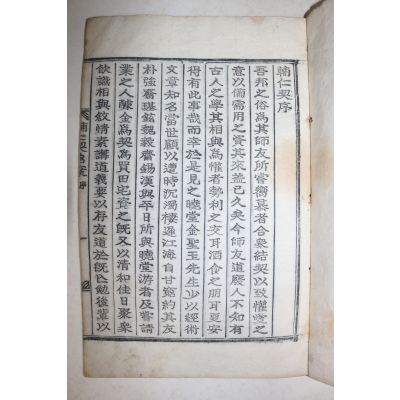 輔仁契序
吾邦之俗爲其師友所嘗嚮慕者合衆結契以致懽愛之
意以備需用之資其來盖已久矣今師友道廢人不知有
古人之學其相與爲懽者勢利之交耳酒食之朋耳夏安
得有此事哉而幸於是見之曉堂金聖玉先生少以經術
文章知名當世顧以遭時沉濁棲遲江海自甘窮約其友
朴強齋琪鉉魏毅齋錫漢與平日所與曉堂游者及嘗請
業之人醵金爲契爲買田宅資之旣又以清和佳日聚衆
飮讌相與敘情素講道義要以存友道於旣亡勉後輩以
輔仁契案序
一